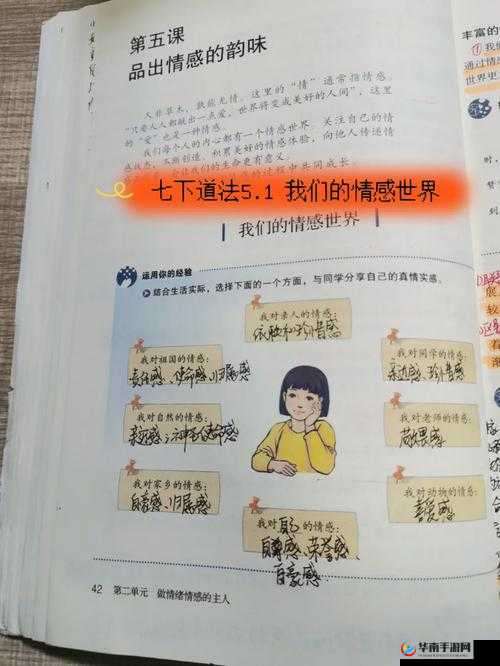 第五课
品出情感的韵味
人非草木，孰能无情。这里的“情”通常指情感。
“只要人人都献出一点爱，世界将变成美好的人间”，这里
的“爱”也是一种情感。
我们每个人的内心都有一个情感世界。关注自己的情
感状态，不断创造、积累美好的情感体验，向他人传递情
七下道法5.1 我们的情感世界
我们的情感世界
运用你的经验
结合生活实际，选择下面的一个方面，与同学分享自己的真情实感。
我对亲人的情感：
依赖和珍惜感
我对祖国的情感：
责任感、使命感、归属感
我对同学的情感：
亲近感、珍惜感
我对自然的情感：
我对老师的情感：
我对家乡的情感：
自豪感、归属感
我对动物的情感：
喜爱感
我对自己的情感：
自尊感、荣誉感、
自豪感
42 第二单元 做情绪情感的主人
丰富的
① 我们
通过情感
世界更
华南手游网